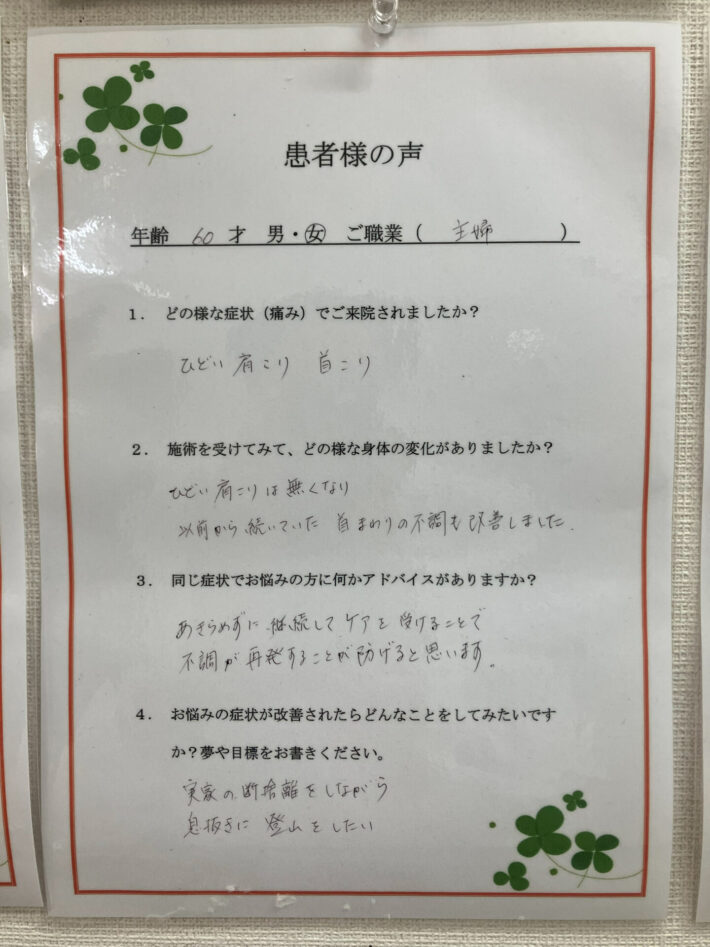 患者様の声
年齢 60 才 男・女 ご職業（ 主婦 ）
1. どの様な症状（痛み）でご来院されましたか？
ひどい肩こり 首こり
2. 施術を受けてみて、どの様な身体の変化がありましたか？
ひどい肩こりは無くなり
以前から続いていた 首まわりの不調も改善しました.
3. 同じ症状でお悩みの方に何かアドバイスがありますか？
あきらめずに継続してケアを受けることで
不調が再発することが防げると思います。
4. お悩みの症状が改善されたらどんなことをしてみたいです
か？夢や目標をお書きください。
実家の断捨離をしながら
息抜きに登山をしたい